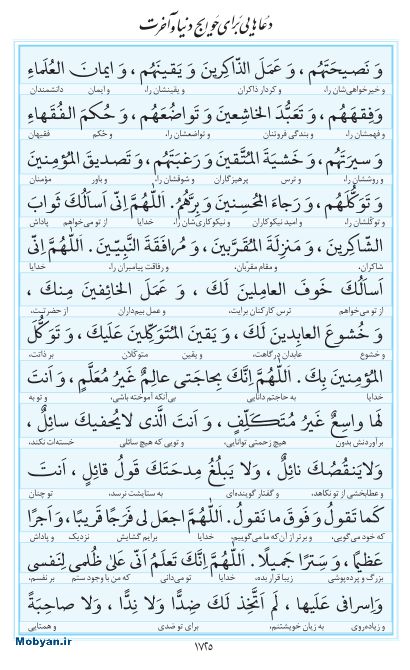 دعاهایی برای حوایج دنیا و آخرت
وَ نَصیحَتَهُم، وَ عَمَلَ الذّاکِرینَ وَ یَقینَهُم، وَ ایمانَ العُلَماءِ
و خیرخواهی‌شان را، و کردار ذاکران و یقینشان را، و ایمان دانشمندان
وَفِقهَهُم، وَ تَعَبُّدَ الخاشِعینَ وَ تَواضُعَهُم، وَ حُکمَ الفُقَهاءِ
و فهمشان را، و بندگی فروتنان و تواضعشان را، و حُکم فقیهان
وَ سیرَتَهُم، وَ خَشیَةَ المُتَّقینَ وَ رَغبَتَهُم، وَ تَصدیقَ المُؤمِنینَ
و روششان را، و ترس پرهیزگاران و شوقشان را، و باور مؤمنان
وَ تَوَکُّلَهُم، وَ رَجاءَ المُحسِنینَ وَ بِرَّهُم. اَللّهُمَّ اِنّی اَسألُکَ ثَوابَ
و توکّلشان را، و امید نیکوکاران و نیکوکاری‌شان را. خدایا از تو می‌خواهم پاداش
الشّاکِرینَ، وَ مَنزِلَةَ المُقَرَّبینَ، وَ مُرافَقَةَ النَّبِیّینَ. اَللّهُمَّ اِنّی
شاکران، و مقام مقربان، و رفاقت پیامبران را، خدایا
اَسألُکَ خَوفَ العامِلینَ لَکَ، وَ عَمَلَ الخائِفینَ مِنکَ،
از تو می‌خواهم ترس کارکنان برایت، و عمل بیم‌داران از حضرتت،
وَ خُشوعَ العابِدینَ لَکَ، وَ یَقینَ المُتَوَکِّلینَ عَلَیکَ، وَ تَوَکُّلَ
و خشوع عابدان درگاهت، و یقین متوکّلان بر ذاتت،
المُؤمِنینَ بِکَ. اَللّهُمَّ اِنَّکَ بِحاجَتی عالِمٌ غَیرُ مُعَلَّمٍ، وَ اَنتَ
خدایا به حاجتم دانایی بی‌آنکه آموخته باشی، و تو به
لَها واسِعٌ غَیرُ مُتَکَلِّفٍ، وَ اَنتَ الَّذی لایُحفیکَ سائِلٌ،
برآوردنش بدون هیچ زحمتی توانایی، و تویی که هیچ سائلی خسته‌ات نکند،
وَلایَنقُصُکَ نائِلٌ، وَلا یَبلُغُ مِدحَتَکَ قَولُ قائِلٍ، اَنتَ
و عطابخشی از تو نکاهد، و گفتار گوینده‌ای به ستایشت نرسد، تو چنان
کَما تَقولُ وَ فَوقَ ما نَقولُ. اَللّهُمَّ اجعَل لی فَرَجًا قَریبًا، وَ اَجرًا
که خود می‌گویی، و برتر از آن که ما می‌گوییم. خدایا برایم گشایش نزدیک و پاداش
عَظیمًا، وَ سِترًا جَمیلًا. اَللّهُمَّ اِنَّکَ تَعلَمُ اَنّی عَلی ظُلمی لِنَفسی
بزرگ و پرده‌پوشی زیبا قرار بده، خدایا تو می‌دانی که من با وجود ستم بر نفسم،
وَ اِسرافی عَلَیها، لَم اَتَّخِذ لَکَ ضِدًّا وَ لا نِدًّا، وَ لا صاحِبَةً
و زیاده‌روی به زیان خویشتنم، برای تو ضدی و همتایی
Mobyan.ir
۱۷۲۵